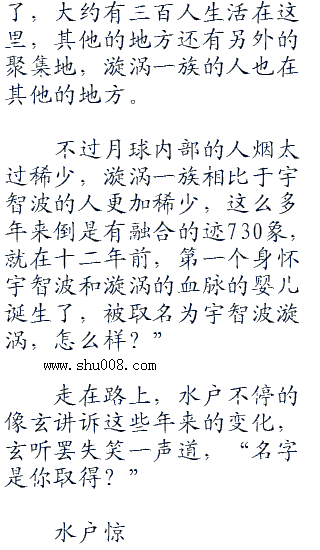 了，大约有三百人生活在这
里，其他的地方还有另外的
聚集地，漩涡一族的人也在
其他的地方。
不过月球内部的人烟太
过稀少，漩涡一族相比于宇
智波的人更加稀少，这么多
年来倒是有融合的迹730象，
就在十二年前，第一个身怀
宇智波和漩涡的血脉的婴儿
诞生了，被取名为宇智波漩
涡，怎么样？”
www.shu008.com
走在路上，水户不停的
像玄讲诉这些年来的变化，
玄听罢失笑一声道，“名字
是你取得？”
水户惊